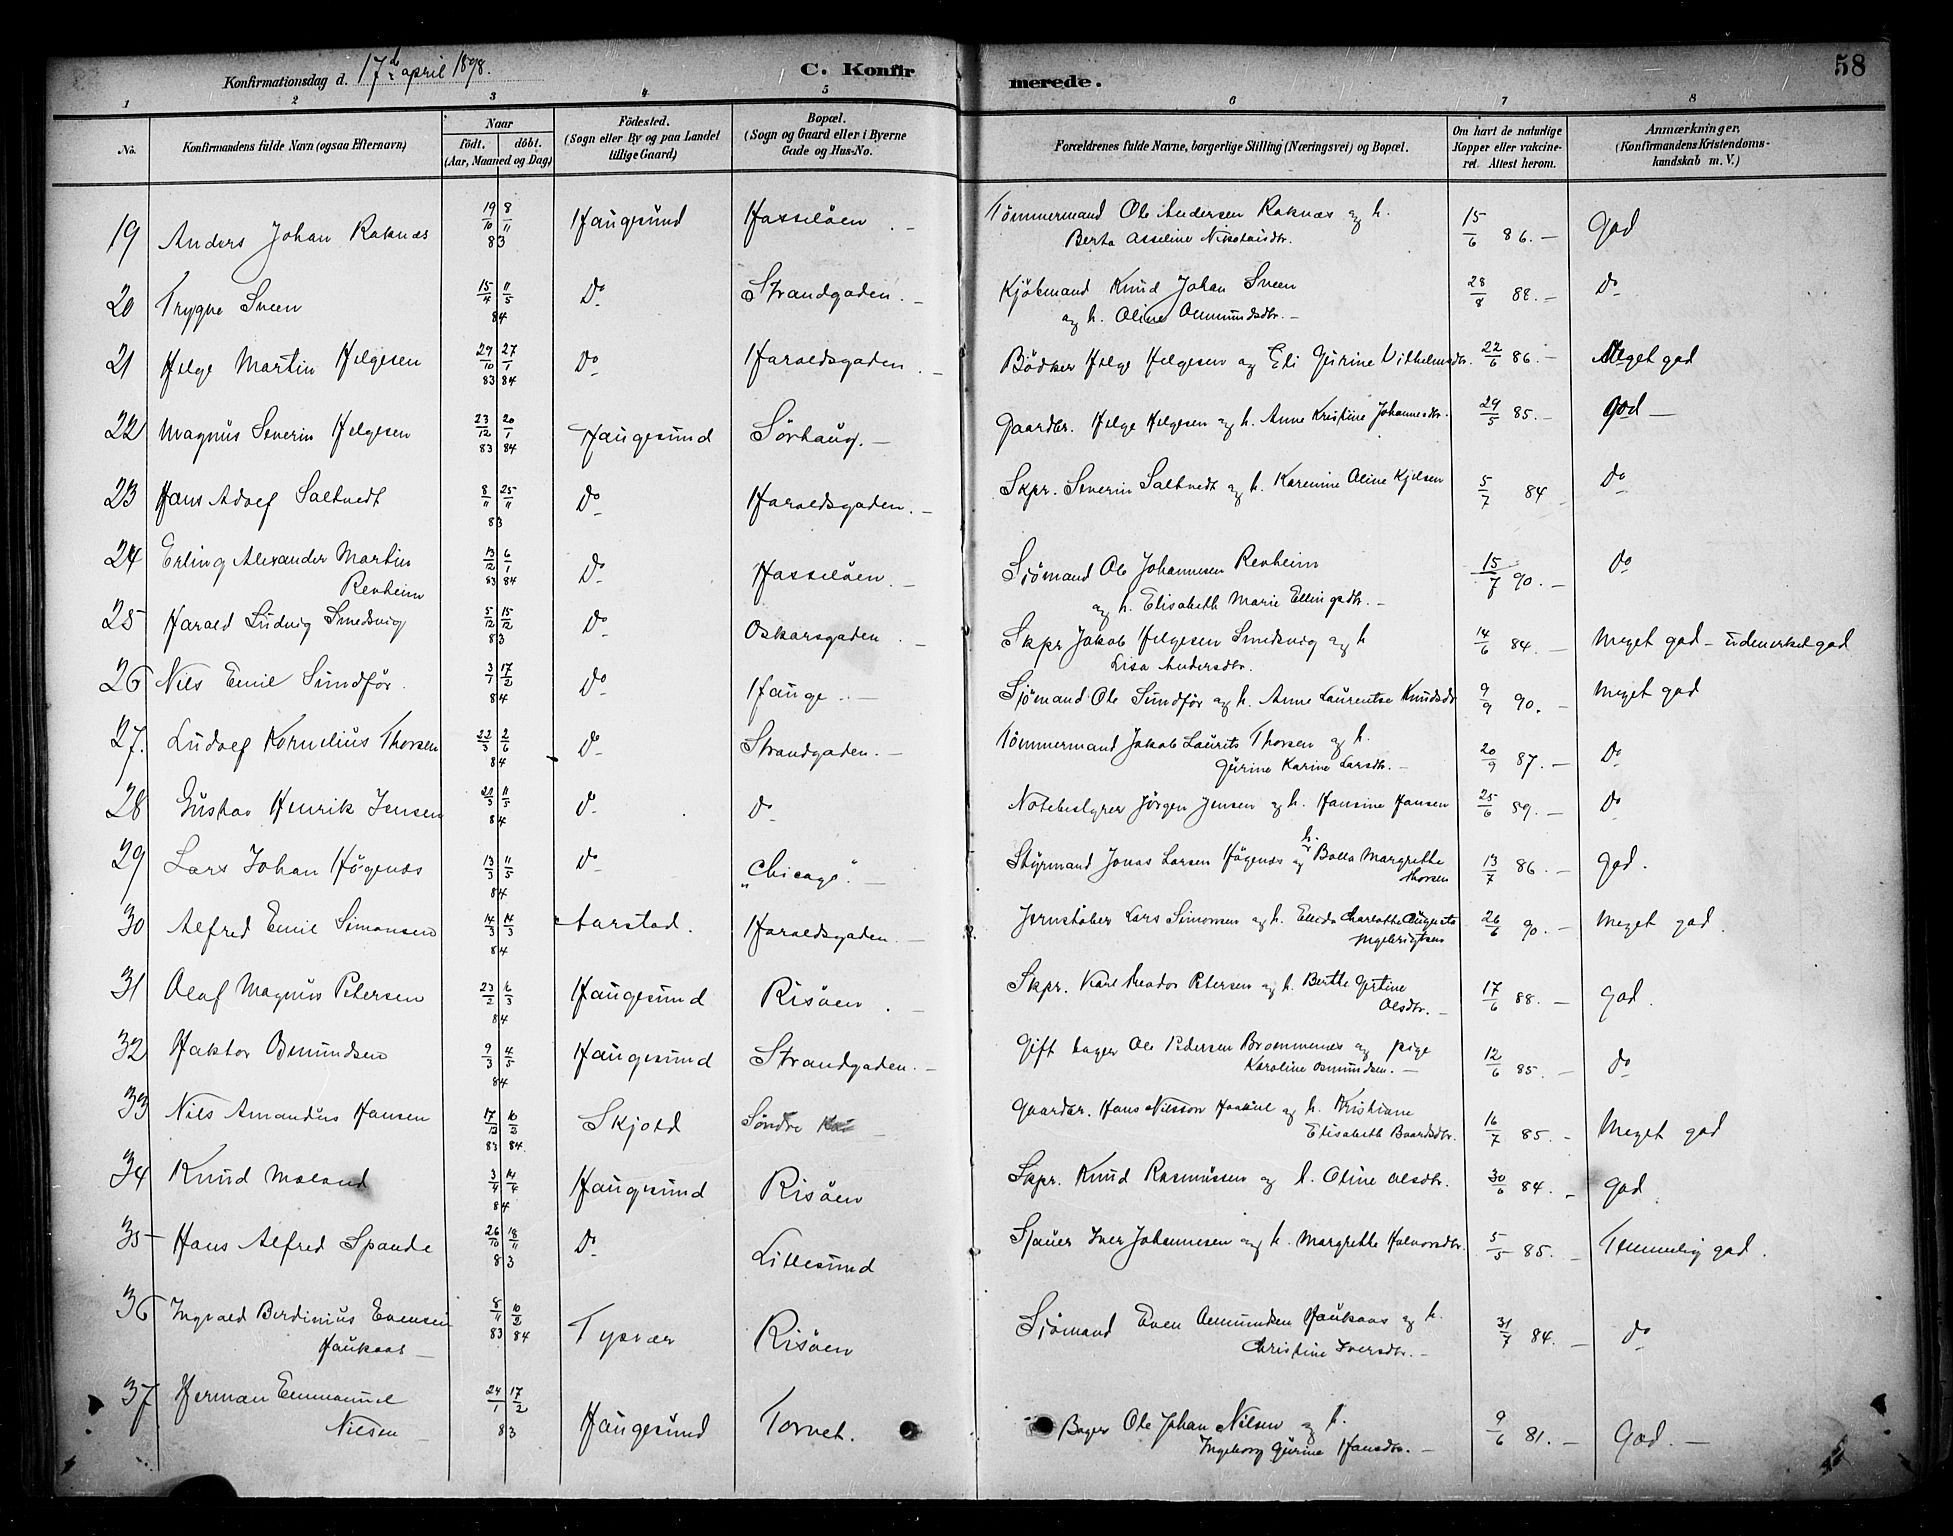 Konfirmationsdag d. 17d april 1898.
C. Konfirmerede.
58
1 2 3 4 5 6 7 8
No.
Konfirmandens fulde Navn (ogsaa Efternavn)
Naar
födt. döbt.
(Aar, Maaned og Dag)
Födested.
(Sogn eller By og paa Landet
tillige Gaard)
Bopæl.
(Sogn og Gaard eller i Byerne
Gade og Hus-No.
Forældrenes fulde Navne, borgerlige Stilling (Næringsvei) og Bopæl.
Om havt de naturlige
Kopper eller vakcine-
ret. Attest herom.
Anmærkninger,
(Konfirmandens Kristendoms-
kundskab m. V.)
19 Anders Johan Raknæs 19/10 8/11 83 Haugesund Hasseløen. Tömmermand Ole Andersen Raknæs og h. 15/6 86. God
Berta Asseline Nikolaisdtr.
20 Trygve Sveen 15/4 11/5 84 Do Strandgaden. Kjöbmand Knud Johan Sveen 28/8 88. Do
og h. Oline Aemundsdtr.
21 Helge Martin Helgesen 29/10 27/1 83 84 Do Haraldsgaden. Bödker Helge Helgesen og Eli Gurine Vilhelmsdtr. 22/6 86. Meget god
22 Magnus Severin Helgesen 23/12 20/1 83 84 Haugesund Sørhaug. Gaardbr. Helge Helgesen og h. Anne Kristine Johannesdtr. 29/5 85. god
23 Hans Adolf Saltvedt 8/11 25/11 83 Do Haraldsgaden. Skpr. Severin Saltvedt og h. Karenine Oline Kjelsen 5/7 84 Do
24 Erling Alexander Martin 13/12 6/1 83 84 Do Hasseløen. Sjömand Ole Johannesen Revheim 15/7 90. Do
Revheim og h. Elisabeth Marie Ellingsdtr.
25 Harald Ludvig Smedsvig 5/12 15/12 83 Do Oskarsgaden. Skpr Jakob Helgesen Smedsvig og h 14/6 84. Meget god - udmerket god
Lisa Andersdtr.
26 Nils Emil Sundför. 3/1 17/2 84 Do Hauge. Sjömand Ole Sundför og h. Anne Laurentse Knudsdtr 9/9 90. Meget god
27. Ludolf Kornelius Thorsen 22/3 2/6 84 Do Strandgaden. Tömmermand Jakob Laurits Thorsen og h. 20/9 87. Do
Gurine Karine Larsdtr.
28 Gustav Henrik Jensen 20/3 11/5 84 Do Do Notebestyrer Jörgen Jensen og h. Hansine Hansen 25/6 89. Do
29 Lars Johan Högenæs 13/3 11/5 84 Do „Chicago". Styrmand Jonas Larsen Högenæs og h. Bolla Margrethe 13/7 86. God.
Thorsen
30 Alfred Emil Simonsen 14/3 14/3 84 Aarstad. Haraldsgaden. Jernstøber Lars Simonsen og h. Elieda Charlotte Augusta 26/6 90. Meget god.
Ingebrigtsen
31 Olaf Magnus Petersen 23/2 6/3 84 Haugesund Risöen. Skpr. Karl Petersen og h. Berthe Gurtine 17/6 88. God.
Olsdtr.
32 Haktor Osmundsen 9/3 4/5 84 Haugesund Strandgaden. Gift bager Ole Pedersen Brommenæs og pige 12/6 85. Do
Karoline Osmundsen.
33 Nils Amandus Hansen 17/12 10/2 83 84. Skjold Söndre Gaardbr. Hans Nilsson og h. Kristiane 16/7 85. Meget god
Elisabeth Baardsdtr.
34 Knud Moland 3/4 14/4 84 Haugesund Risöen Skpr. Knud Rasmussen og h. Oline Olsdtr. 30/6 84. God.
35 Hans Alfred Spande 26/10 18/11 83 Do Lillesund Sjauer Iver Johannesen og h. Margrethe Halvorsdtr. 5/5 85. Temmelig god.
36 Ingvald Berdinius Evensen 8/11 10/2 83 84 Tysvær Risöen Sjömand Even Aemundsen Haukaas og h. 31/7 84. Do
Haukaas Christine Iversdtr.
37 Herman Emmanuel 24/1 17/2 83 Haugesund Torvet. Bager Ole Johan Nilsen og h. 9/6 81. God.
Nilsen Ingeborg Gurine Hansdtr.